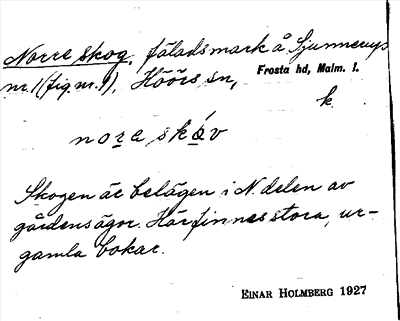 Norre skog, fäladsmark å Sjunnerup
nr 1 (fig nr. 1), Höörs sn, Frosta hd, Malm. l.
k
nore skóv
Skogen är belägen i N. delen av
gårdens ägor. Här finnes stora, ur-
gamla bokar.
EINAR HOLMBERG 1927